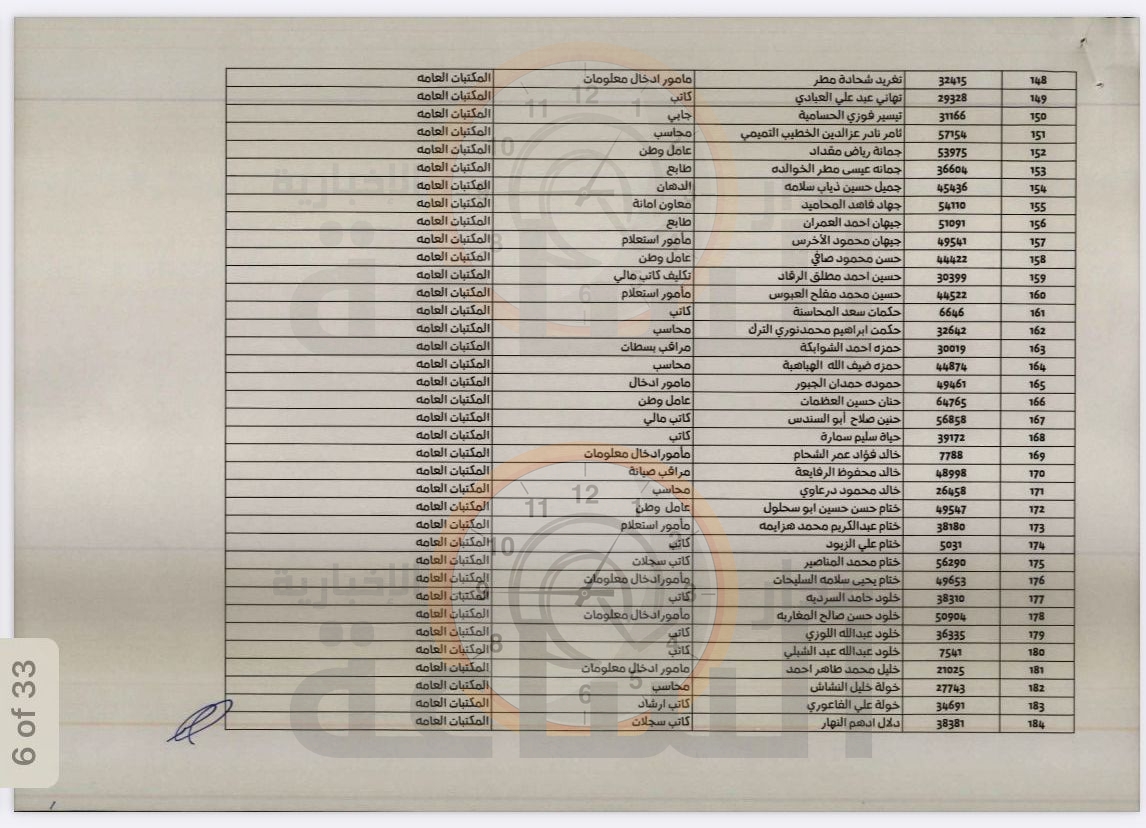 148 32415 تغريد شحادة مطر مامور ادخال معلومات المكتبات العامه
149 29328 تهاني عبد علي العبادي كاتب المكتبات العامه
150 31166 تيسير فوزي الحسامية جابي المكتبات العامه
151 57154 ثامر نادر عزالدين الخطيب التميمي محاسب المكتبات العامه
152 53975 جمانة رياض مقداد عامل وطن المكتبات العامه
153 36604 جمانه عيسى مطر الخوالده طابع المكتبات العامه
154 45436 جميل حسين ذياب سلامه الدهان المكتبات العامه
155 54110 جهاد فاهد المحاميد معاون امانة المكتبات العامه
156 51091 جيهان احمد العمران طابع المكتبات العامه
157 49541 جيهان محمود الأخرس مأمور استعلام المكتبات العامه
158 44422 حسن محمود صافي عامل وطن المكتبات العامه
159 30399 حسين احمد مطلق الرقاد تكليف كاتب مالي المكتبات العامه
160 44522 حسين محمد مفلح العبوس مأمور استعلام المكتبات العامه
161 6646 حكمات سعد المحاسنة كاتب المكتبات العامه
162 32642 حكمت ابراهيم محمدنوري الترك محاسب المكتبات العامه
163 30019 حمزه احمد الشوابكة مراقب بسطات المكتبات العامه
164 44874 حمزه ضيف الله الهباهبة محاسب المكتبات العامه
165 49461 حموده حمدان الجبور مامور ادخال المكتبات العامه
166 64765 حنان حسين العظمات عامل وطن المكتبات العامه
167 56858 حنين صلاح أبو السندس كاتب مالي المكتبات العامه
168 39172 حياة سليم سمارة كاتب المكتبات العامه
169 7788 خالد فؤاد عمر الشحام مأمورادخال معلومات المكتبات العامه
170 48998 خالد محفوظ الرفايعة مراقب صيانة المكتبات العامه
171 26458 خالد محمود درعاوي محاسب المكتبات العامه
172 49547 ختام حسن حسين ابو سحلول عامل وطن المكتبات العامه
173 38180 ختام عبدالكريم محمد هزايمه مأمور استعلام المكتبات العامه
174 5031 ختام علي الزيود كاتب المكتبات العامه
175 56290 ختام محمد المناصير كاتب سجلات المكتبات العامه
176 49653 ختام يحيى سلامه السليحات مأمورادخال معلومات المكتبات العامه
177 38310 خلود حامد السرديه كاتب المكتبات العامه
178 50904 خلود حسن صالح المغاربه مأمورادخال معلومات المكتبات العامه
179 36335 خلود عبدالله اللوزي كاتب المكتبات العامه
180 7541 خلود عبدالله عبد الشبلي كاتب المكتبات العامه
181 21025 خليل محمد طاهر احمد مامور ادخال معلومات المكتبات العامه
182 27743 خولة خليل النشاش محاسب المكتبات العامه
183 34691 خولة علي الفاعوري كاتب ارشاد المكتبات العامه
184 38381 دلال ادهم النهار كاتب سجلات المكتبات العامه
6 of 33